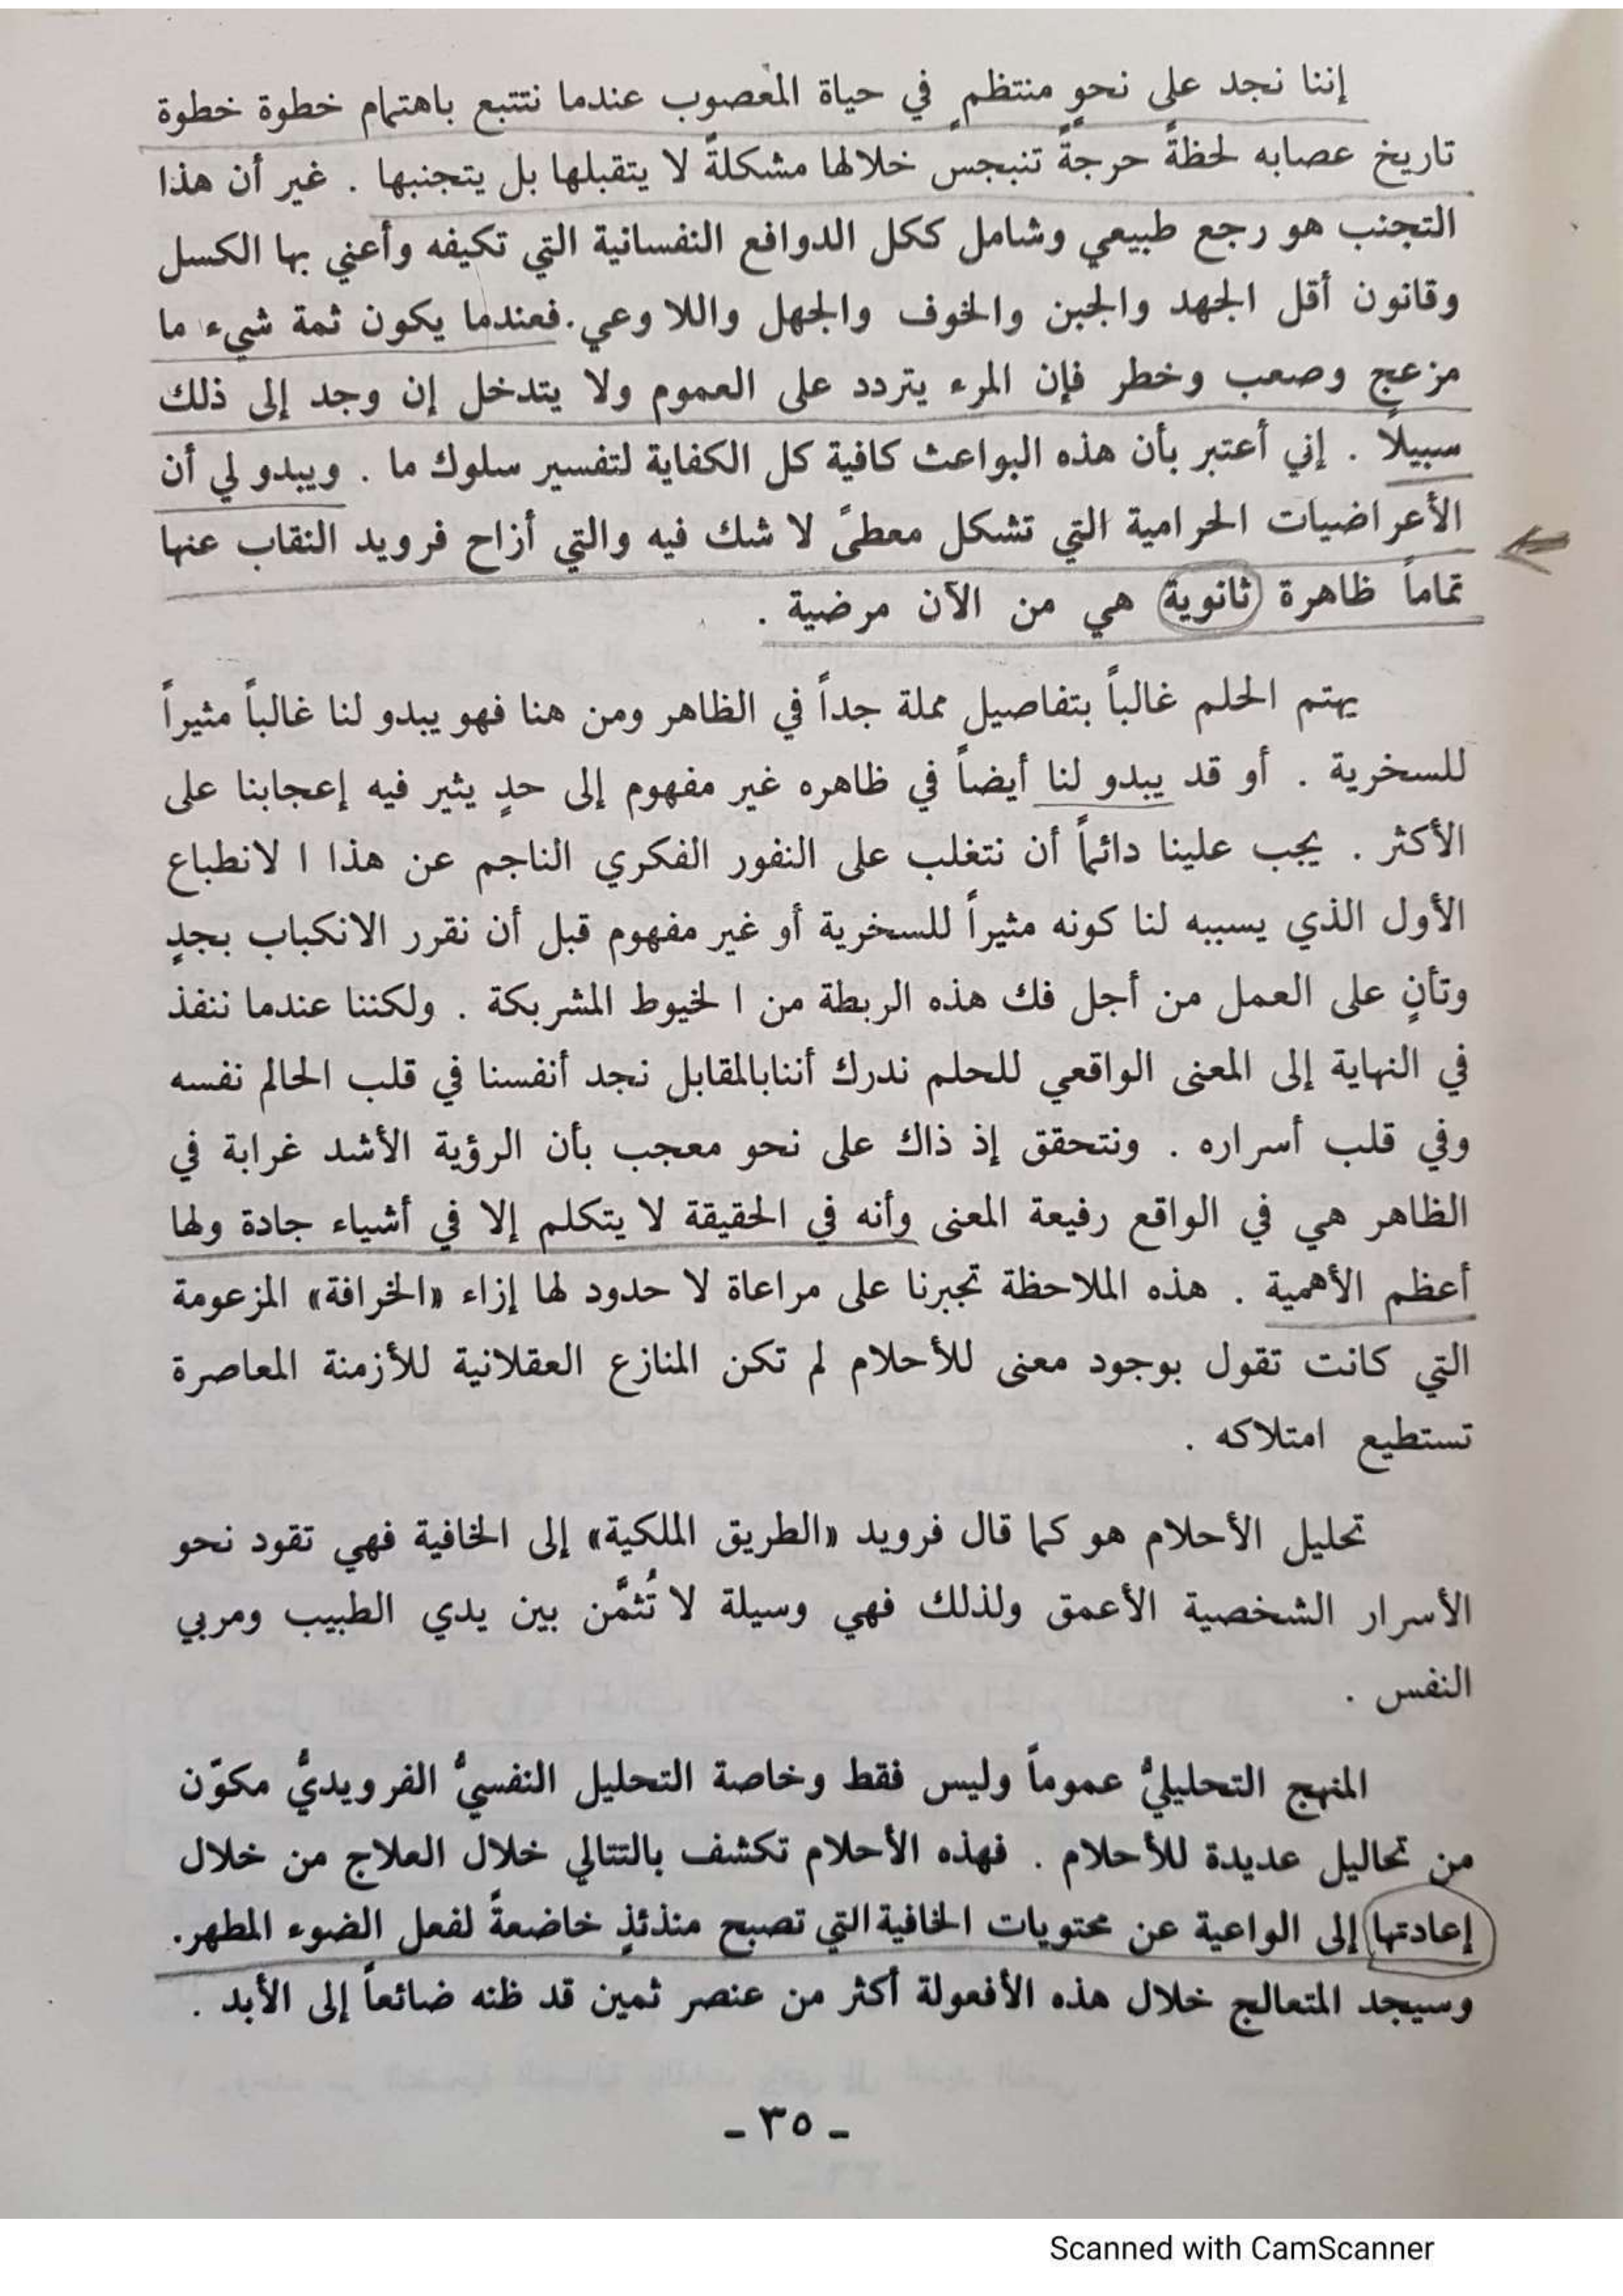 إننا نجد على نحوٍ منتظم في حياة المعصوب عندما نتتبع باهتمام خطوة خطوة
تاريخ عصابه لحظةً حرجةً تنبجسُ خلالها مشكلةً لا يتقبلها بل يتجنبها . غير أن هذا
التجنب هو رجع طبيعي وشامل ككل الدوافع النفسانية التي تكيفه وأعني بها الكسل
وقانون أقل الجهد والجبن والخوف والجهل واللا وعي . فعندما يكون ثمة شيء ما
مزعج وصعب وخطر فإن المرء يتردد على العموم ولا يتدخل إن وجد إلى ذلك
سبيلاً . إني أعتبر بأن هذه البواعث كافية كل الكفاية لتفسير سلوك ما . ويبدو لي أن
الأعراضيات الحرامية التي تشكل معطىً لا شك فيه والتي أزاح فرويد النقاب عنها
تماماً ظاهرة ثانوية هي من الآن مرضية .
يهتم الحلم غالباً بتفاصيل مملة جداً في الظاهر ومن هنا فهو يبدو لنا غالباً مثيراً
للسخرية . أو قد يبدو لنا أيضاً في ظاهره غير مفهوم إلى حدٍ يثير فيه إعجابنا على
الأكثر . يجب علينا دائماً أن نتغلب على النفور الفكري الناجم عن هذا ا لانطباع
الأول الذي يسببه لنا كونه مثيراً للسخرية أو غير مفهوم قبل أن نقرر الانكباب بجدٍ
وتأنٍ على العمل من أجل فك هذه الربطة من ا لخيوط المشربكة . ولكننا عندما ننفذ
في النهاية إلى المعنى الواقعي للحلم ندرك أننابالمقابل نجد أنفسنا في قلب الحالم نفسه
وفي قلب أسراره . ونتحقق إذ ذاك على نحو معجب بأن الرؤية الأشد غرابة في
الظاهر هي في الواقع رفيعة المعنى وأنه في الحقيقة لا يتكلم إلا في أشياء جادة ولها
أعظم الأهمية . هذه الملاحظة تجبرنا على مراعاة لا حدود لها إزاء «الخرافة» المزعومة
التي كانت تقول بوجود معنى للأحلام لم تكن المنازع العقلانية للأزمنة المعاصرة
تستطيع امتلاكه .
تحليل الأحلام هو كما قال فرويد «الطريق الملكية» إلى الخافية فهي تقود نحو
الأسرار الشخصية الأعمق ولذلك فهي وسيلة لا تُثمَّن بين يدي الطبيب ومربي
النفس .
المنهج التحليليُّ عموماً وليس فقط وخاصة التحليل النفسيُّ الفرويديُّ مكوّن
من تحاليل عديدة للأحلام . فهذه الأحلام تكشف بالتتالي خلال العلاج من خلال
إعادتها إلى الواعية عن محتويات الخافية التي تصبح منذئذٍ خاضعةً لفعل الضوء المطهر.
وسيجد المتعالج خلال هذه الأفعولة أكثر من عنصر ثمين قد ظنه ضائعاً إلى الأبد .
- ٣٥ -
Scanned with CamScanner